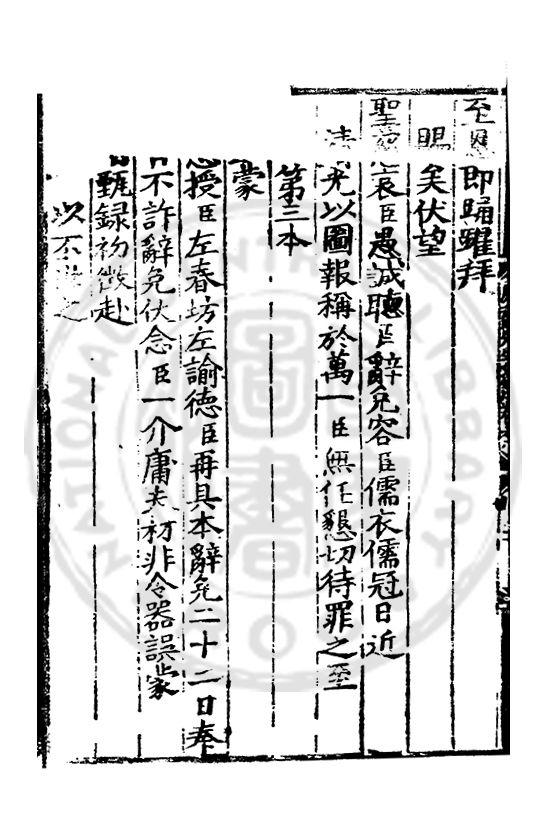 至恩即踊躍拜
賜矣伏望
聖慈哀臣愚誠聽臣辭免容臣儒衣儒冠日近
清光以圖報稱於萬一臣無任懇切待罪之至
第三本
蒙
恩授臣左春坊左諭德臣再具本辭免二十二日奉
旨不許辭免伏念臣一介庸夫初非令器誤蒙
甄録初徵赴
次不